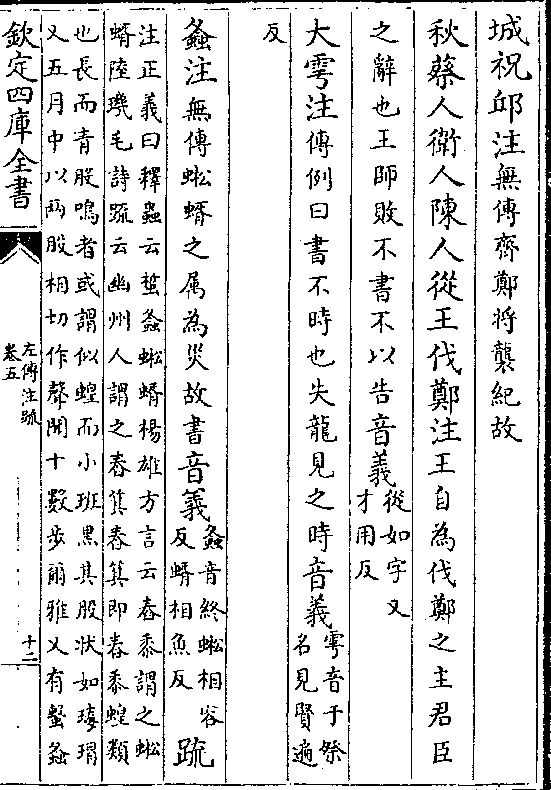 城祝邱注無傳齊鄭將襲紀故
秋蔡人衛人陳人從王伐鄭注王自為伐鄭之主君臣
之辭也王師敗不書不以告音義從如字又
才用反
大雩注傳例曰書不時也失龍見之時音義雩音于祭
名見賢遍
反
螽注無傳蚣蝑之屬為災故書音義螽音終蚣相容
反蝑相魚反疏
注正義曰釋蟲云蜤螽蚣蝑楊雄方言云舂黍謂之蚣
蝑陸璣毛詩疏云幽州人謂之舂箕舂箕即舂黍蝗類
也長而青股鳴者或謂似蝗而小班黑其股狀如瑇瑁
又五月中以兩股相切作聲聞十數步爾雅又有蟿螽
欽定四庫全書
左傳注疏
卷五
十二